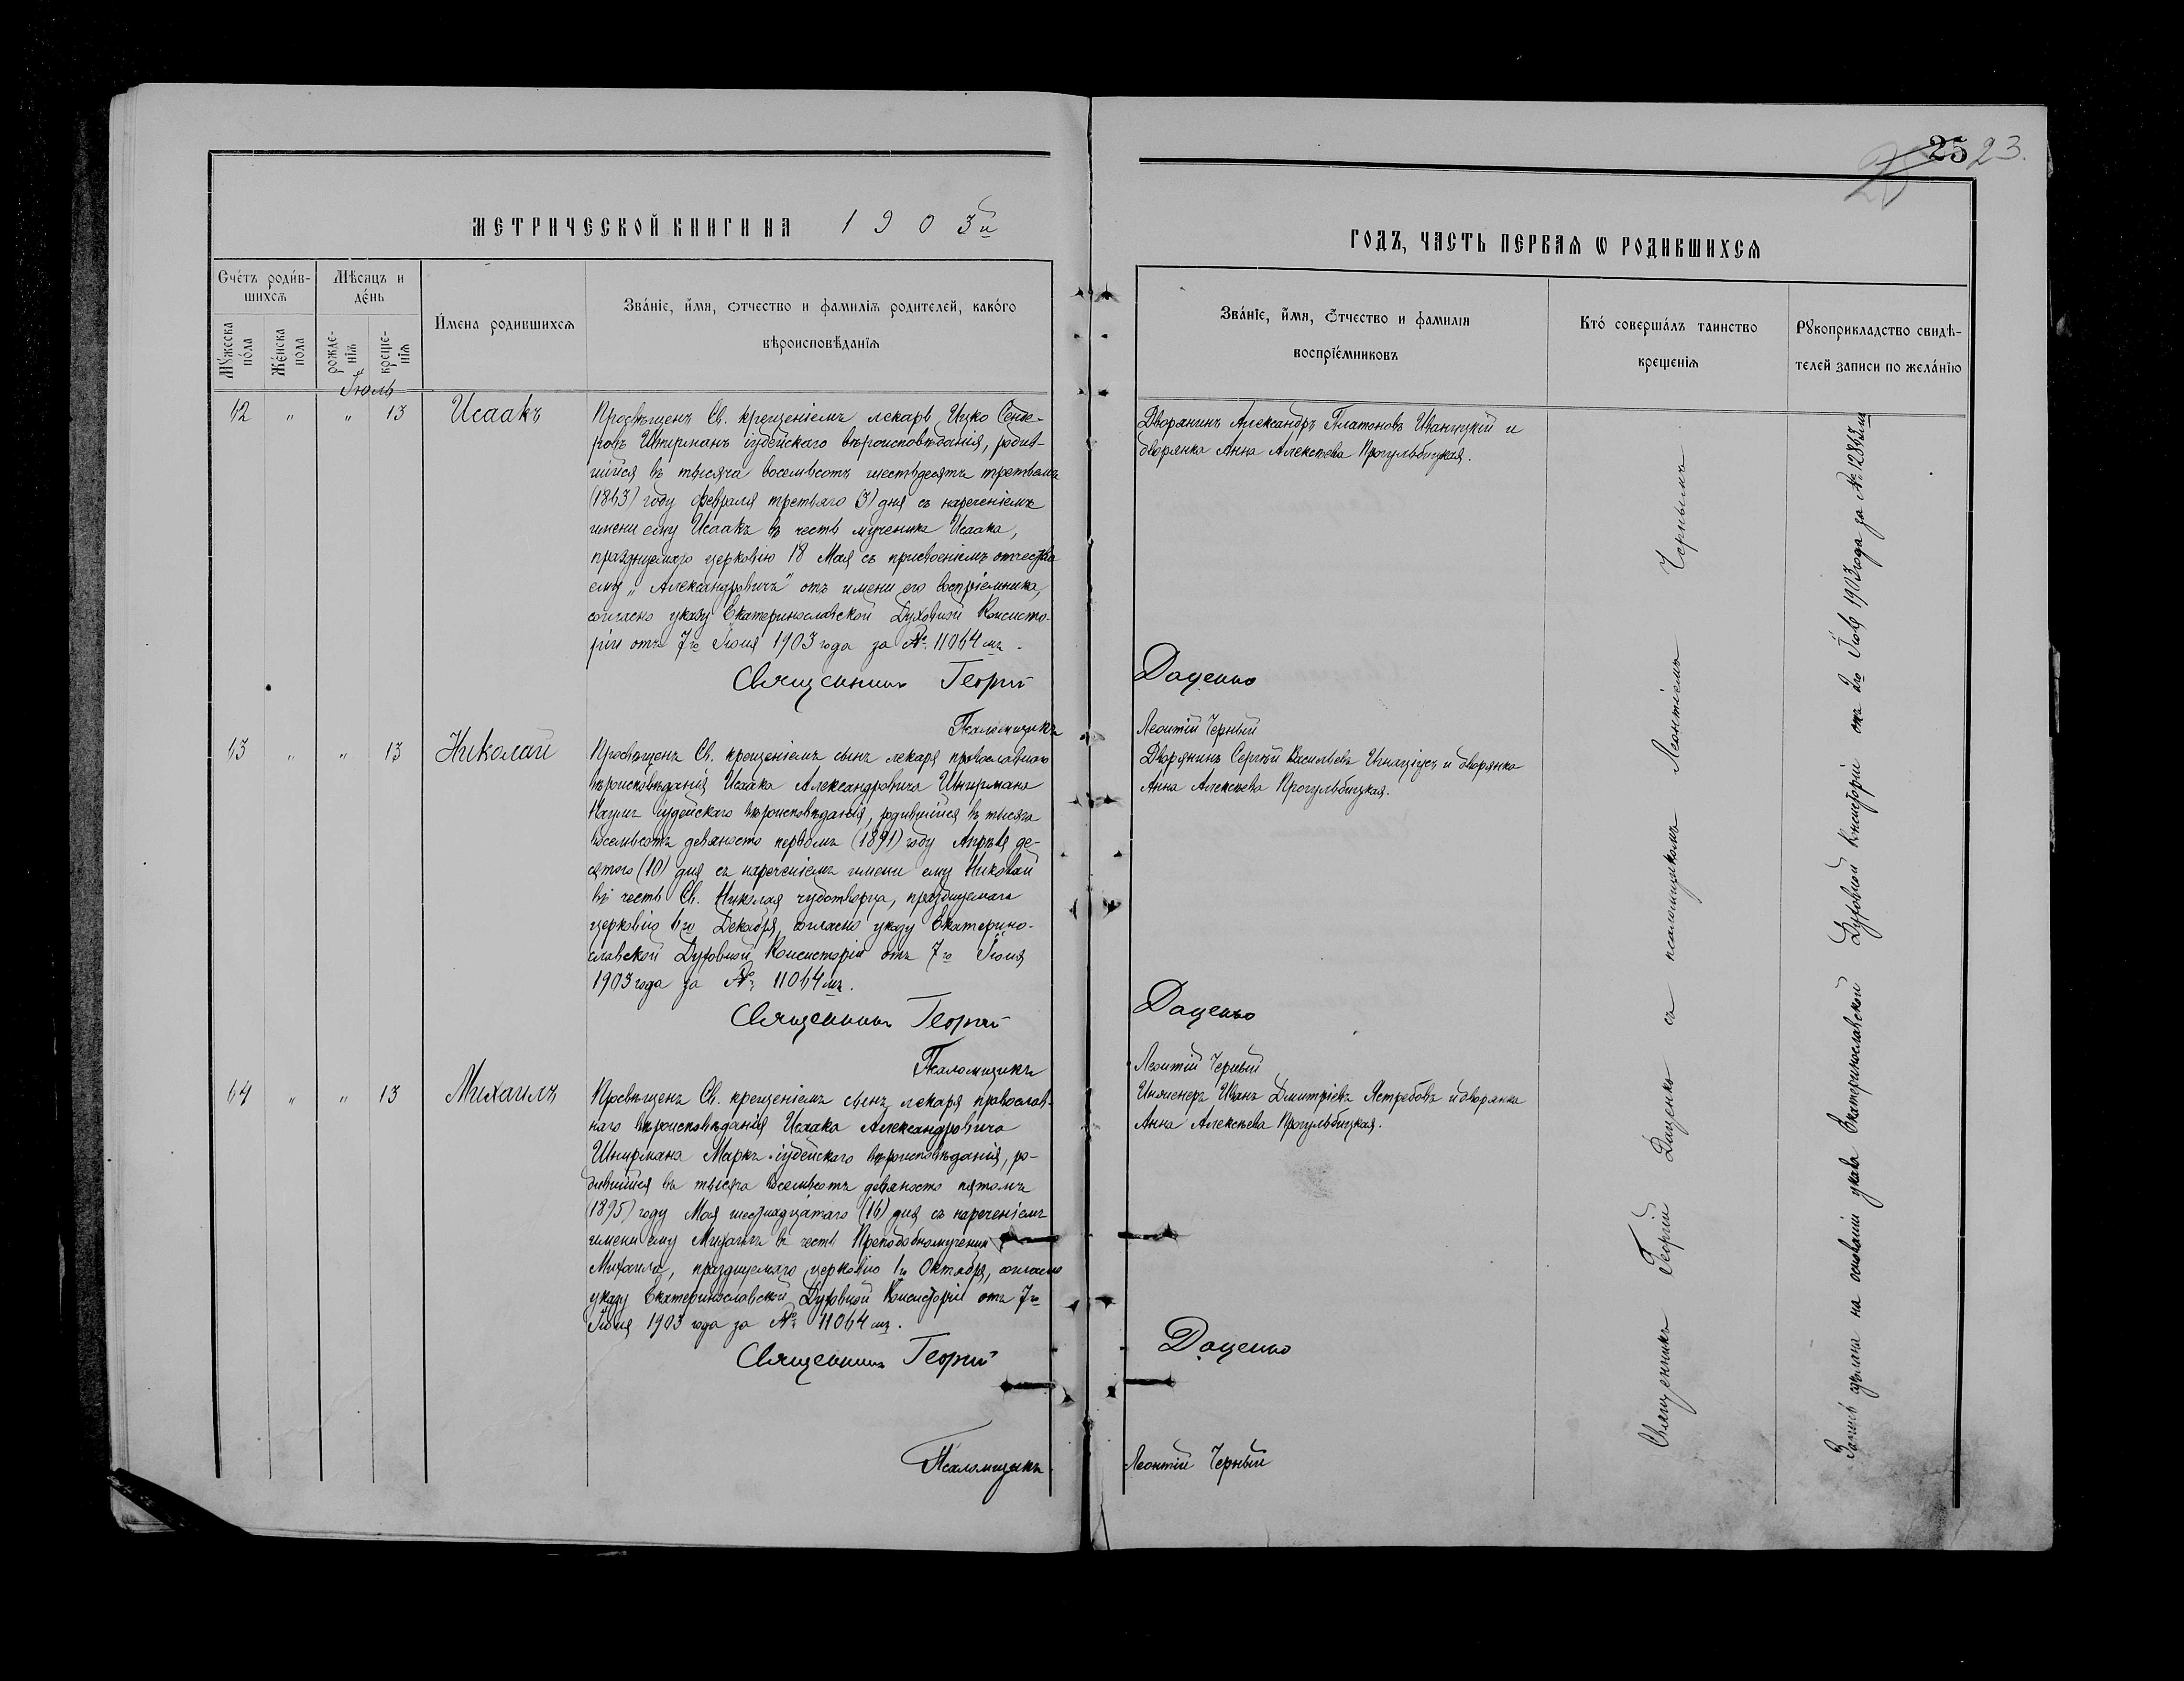 25 23.
МЕТРИЧЕСКОЙ КНИГИ НА 1903й
ГОДЪ, ЧАСТЬ ПЕРВАЯ Ѡ РОДИВШИХСЯ
Счéтъ родив-
шихся
Мѣсяцъ и
дéнь
Мꙋжеска
пóла
Жéнска
пола
рожде-
нїя
креще-
нїя
И́мена родившихся
Звáнїе, и́мя, ѻтчество и фамилїя родителей, какóго
вѣроисповѣданїя
Звáнїе, и́мя, ѻтчество и фамилїя
воспрїéмниковъ
Ктó совершáлъ таинство
крещенїя
Рꙋкоприкладство свидѣ-
телей записи по желáнїю
Іюль
62 " " 13 Исаакъ
Просвѣщенъ Св. крещеніемъ лекарь Ицко Сенде-
ровъ Шнирманъ іудейскаго вѣроисповѣданія, родив-
шійся въ тысяча восемьсотъ шестьдесятъ третьемъ
(1863) году февраля третьяго (3) дня съ нареченіемъ
имени ему Исаакъ въ честь мученика Исаака,
празднуемаго церковію 18 Мая съ присвоеніемъ отчества
ему „Александровичъ" отъ имени его воспріемника,
согласно указу Екатеринославской Духовной Консисто-
ріи отъ 7го Іюня 1903 года за № 11064мъ.
Священникъ Георгій Даценко
Псаломщикъ Леонтій Черный
Дворянинъ Александръ Платоновъ Иваницкій и
дворянка Анна Алексѣева Прогульбицкая.
63 " " 13 Николай
Просвѣщенъ Св. крещеніемъ сынъ лекаря православнаго
вѣроисповѣданія Исаака Александровича Шнирмана
іудейскаго вѣроисповѣданія, родившійся въ тысяча
восемьсотъ девяносто первомъ (1891) году Апрѣля де-
сятаго (10) дня съ нареченіемъ имени ему Николай
въ честь Св. Николая чудотворца, празднуемаго
церковію 6го Декабря, согласно указу Екатерино-
славской Духовной Консисторіи отъ 7го Іюня
1903 года за № 11064мъ.
Священникъ Георгій Даценко
Псаломщикъ Леонтій Черный
Дворянинъ Сергѣй Васильевъ Игнаціусъ и дворянка
Анна Алексѣева Прогульбицкая.
64 " " 13 Михаилъ
Просвѣщенъ Св. крещеніемъ сынъ лекаря православ-
наго вѣроисповѣданія Исаака Александровича
Шнирмана Маркъ іудейскаго вѣроисповѣданія, ро-
дившійся въ тысяча восемьсотъ девяносто пятомъ
(1895) году Мая шестнадцатаго (16) дня съ нареченіемъ
имени ему Михаилъ въ честь Преподобномученика
Михаила, празднуемаго церковію 1го Октября, согласно
указу Екатеринославской Духовной Консисторіи отъ 7го
Іюня 1903 года за № 11064мъ.
Священникъ Георгій Даценко
Псаломщикъ Леонтій Черный
Инженеръ Иванъ Дмитріевъ Ястребовъ и дворянка
Анна Алексѣева Прогульбицкая.
Священникъ Георгій Даценко съ псаломщикомъ Леонтіемъ Чернымъ
Запись сдѣлана на основаніи указа Екатеринославской Духовной Консисторіи отъ 2го 1903 года за №